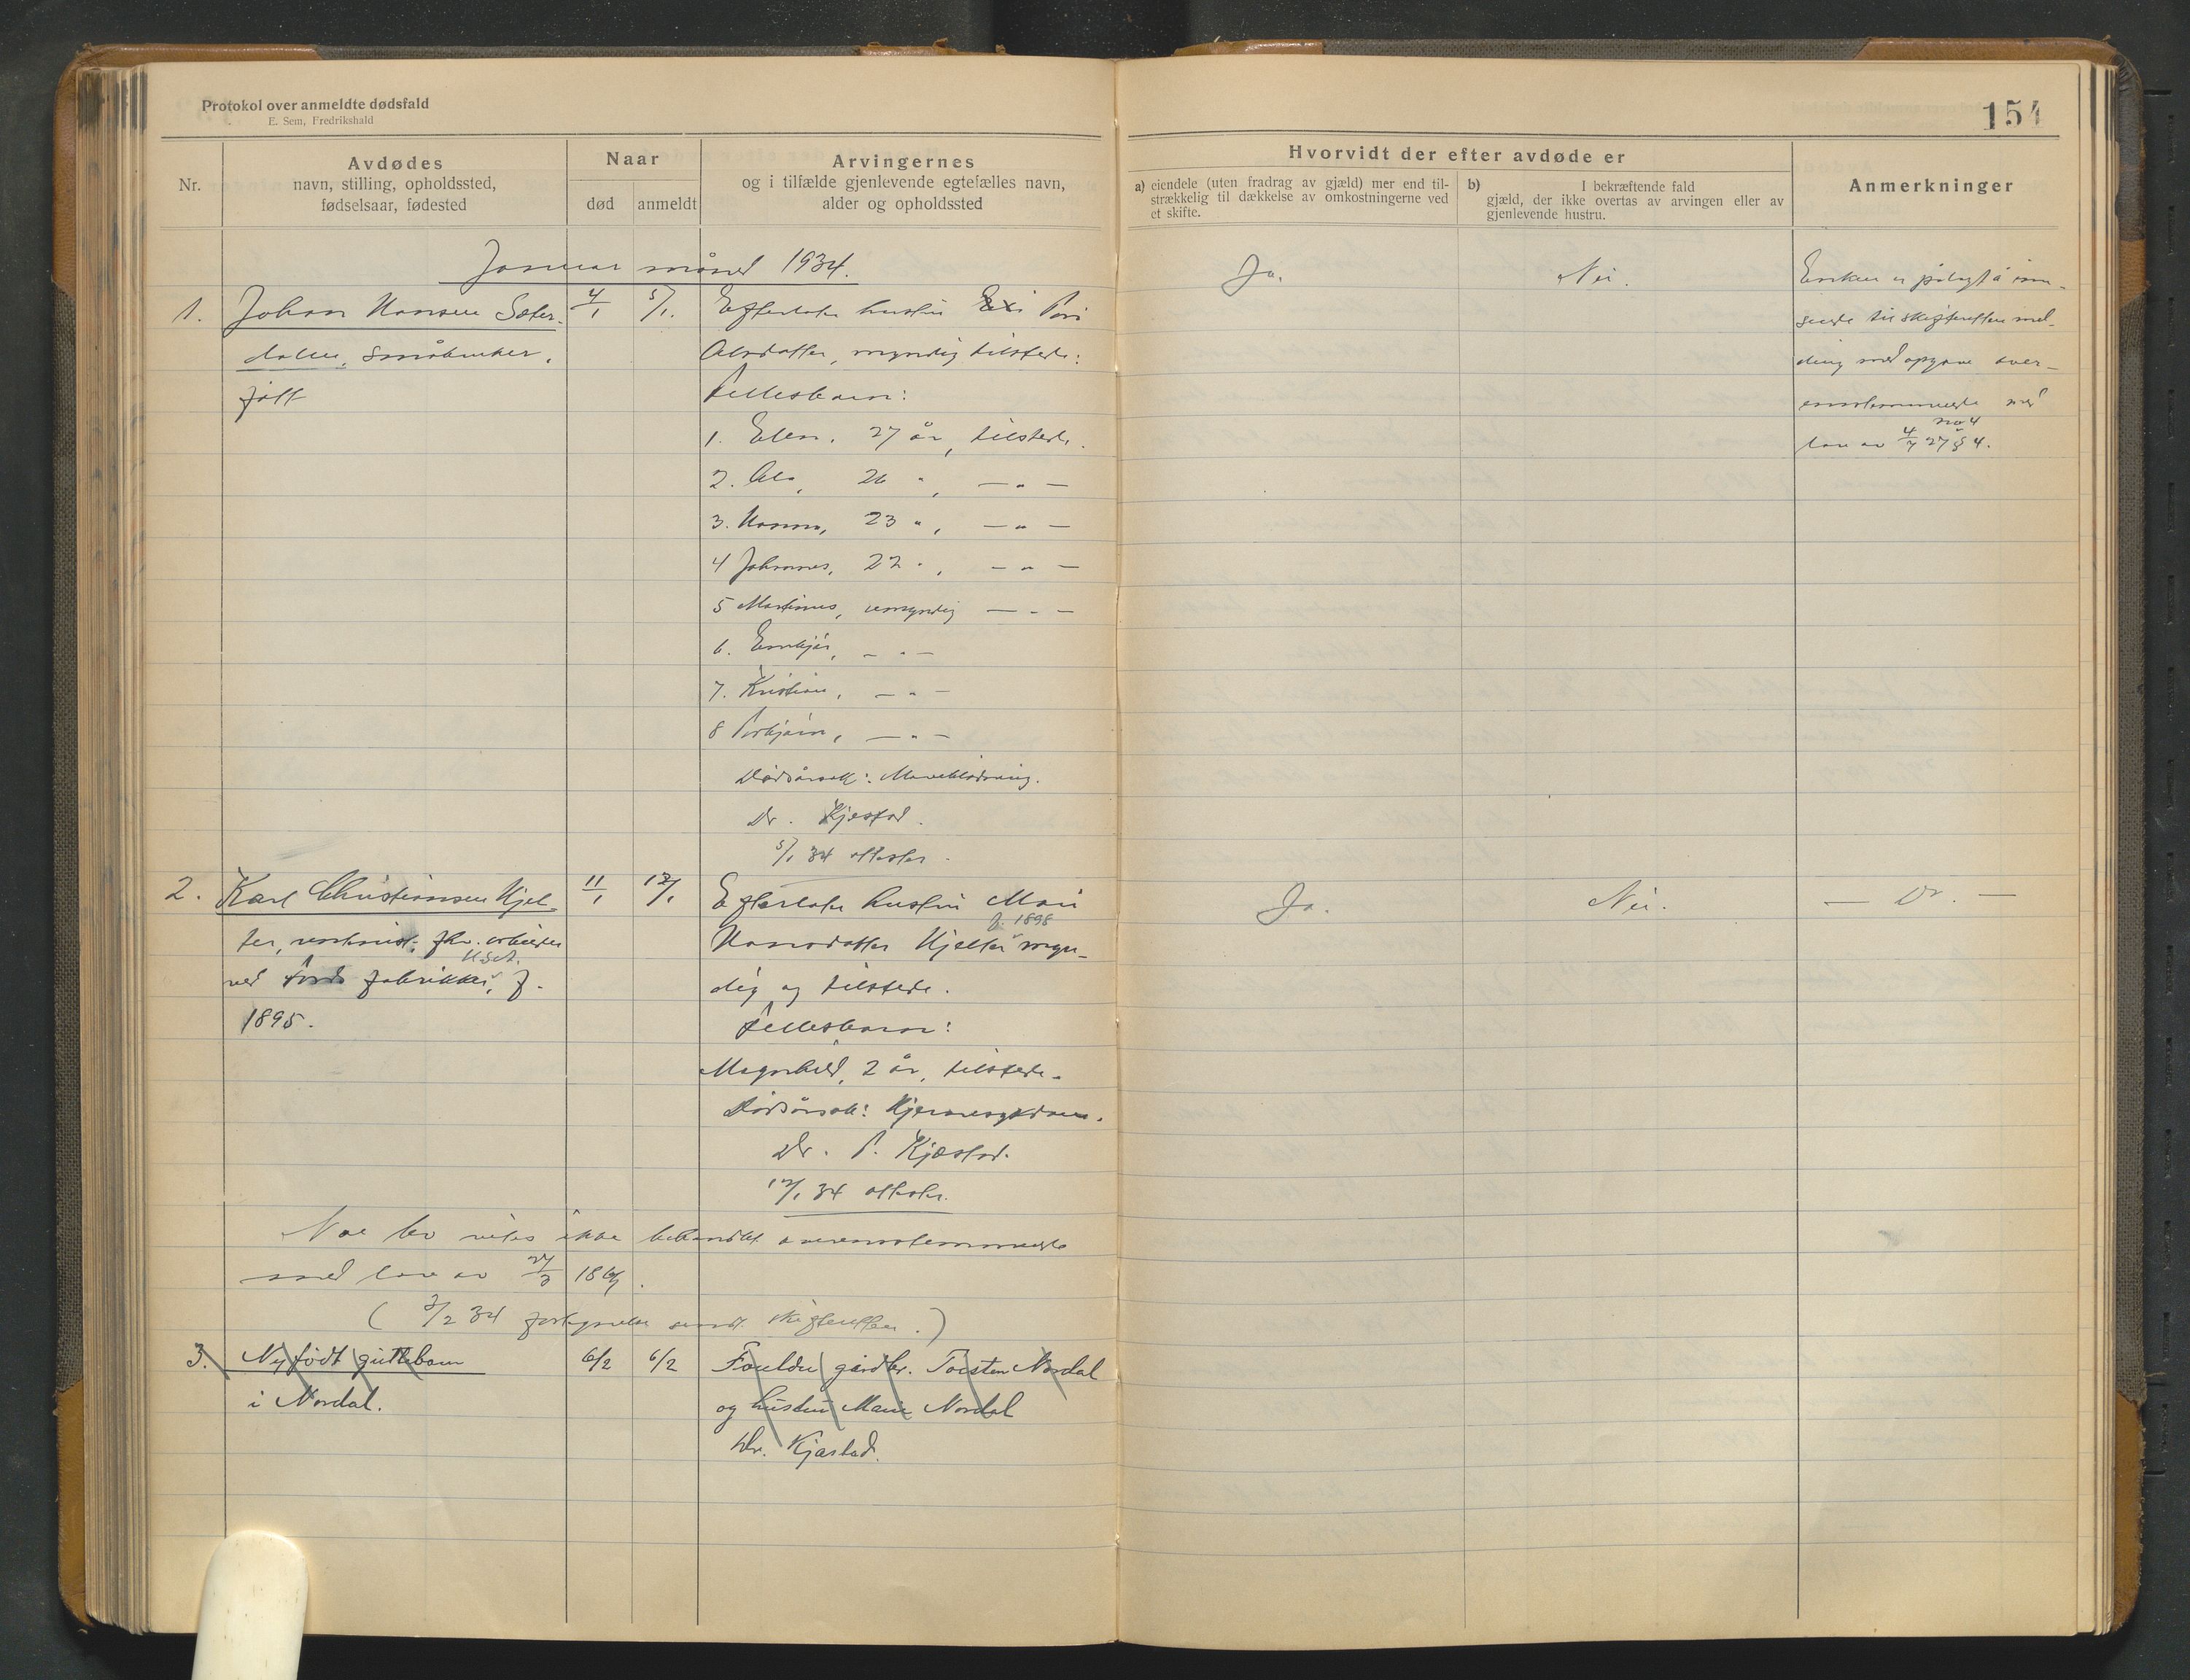 Protokol over anmeldte dødsfald
E. Sem, Fredrikshald
154
Nr.
Avdødes
navn, stilling, opholdssted,
fødselsaar, fødested
Naar
død
anmeldt
Arvingernes
og i tilfælde gjenlevende egtefælles navn,
alder og opholdssted
Hvorvidt der efter avdøde er
a) eiendele (uten fradrag av gjæld) mer end til-
strækkelig til dækkelse av omkostningerne ved
et skifte.
b) I bekræftende fald
gjæld, der ikke overtas av arvingen eller av
gjenlevende hustru.
Anmerkninger
Januar måned 1934.
1. Johan Hansen Sæter-
dalen, småbruker,
født
4/1
5/1.
Efterlater hustru
Olsdatter, myndig tilstede:
Fellesbarn:
1. Elen, 27 år, tilstede.
2. Ola, 26 " , — " —
3. Hanna, 23 " , — " —
4 Johannes, 22 " , — " —
5 Martinus, umyndig — " —
6. — " —
7. Kristian, — " —
8 Torbjørn, — " —
Dødsårsak: Maveblødning.
Dr. Kjestad.
5/1 34 attester.
Ja.
Nei.
Enken er pålagt å inn-
sende til skifteretten mel-
ding med opgave over-
ensstemmende med
lov av 4/7 27 § 4.
no 4
2. Karl Christiansen Hjel-
ter, ved fabrikker, f.
1895.
11/1
12/1
Efterlater hustru Mari
f. 1898
Hansdatter Hjelter myn-
dig og tilstede.
Fellesbarn:
Magnhild, 2 år, tilstede.
Dødsårsak: Hjernesygdom.
Dr. P. Kjæstad.
12/1 34 attester.
Ja.
Nei.
— Do. —
ikke behandlet overensstemmende
med lov av 27/3 186
( 3/2 34 sendt skifteretten.)
3. Nyfødt guttebarn
i Nordal.
6/2
6/2
Foreldre gårdbr. Torsten Nordal
og hustru Marie Nordal
Dr. Kjæstad.